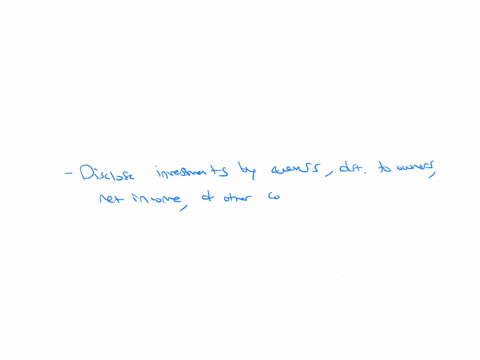 - Disclose investments by owners, dist. to owners,
net income, & other co